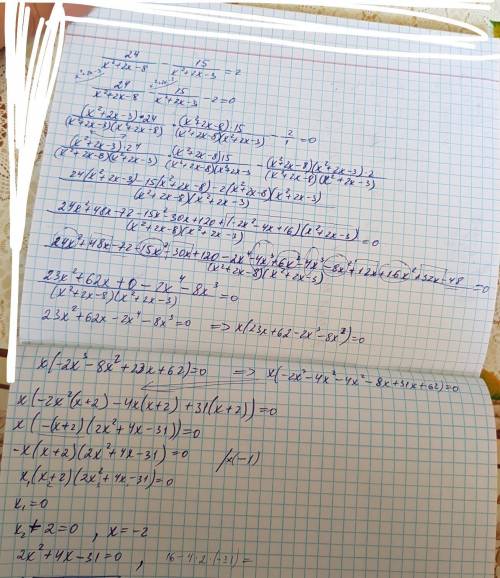 24/(x²+2x-8) - 15/(x²+2x-3) = 2
24/(x²+2x-8) - 15/(x²+2x-3) - 2 = 0
(x²+2x-3)·24/(x²+2x-3)(x²+2x-8) - (x²+2x-8)·15/(x²+2x-8)(x²+2x-3) - 2/1 = 0
(x²+2x-3)·24/(x²+2x-8)(x²+2x-3) - (x²+2x-8)15/(x²+2x-8)(x²+2x-3) - (x²+2x-8)(x²+2x-3)·2/(x²+2x-8)(x²+2x-3)
24(x²+2x-3)-15(x²+2x-8)-2(x²+2x-8)(x²+2x-3)/(x²+2x-8)(x²+2x-3)
24x²+48x-72-15x²-30x+120+(-2x²-4x+16)(x²+2x-3)/(x²+2x-8)(x²+2x-3) = 0
24x²+48x-72-15x²-30x+120-2x⁴-4x³+6x²-4x³-8x²+12x+16x²+32x-48/(x²+2x-8)(x²+2x-3) = 0
23x²+62x+0-2x⁴-8x³/(x²+2x-8)(x²+2x-3) = 0
23x²+62x-2x⁴-8x³=0 => x(23x+62-2x³-8x²)=0
x(-2x³-8x²+23x+62)=0 => x(-2x³-4x²-4x²-8x+31x+62)=0
x(-2x²(x+2)-4x(x+2)+31(x+2))=0
x(-(x+2)(2x²+4x-31))=0
-x(x+2)(2x²+4x-31)=0 /×(-1)
x(x+2)(2x²+4x-31)=0
x₁=0
x₂+2=0, x=-2
2x²+4x-31=0, 16-4·2·(-31)=